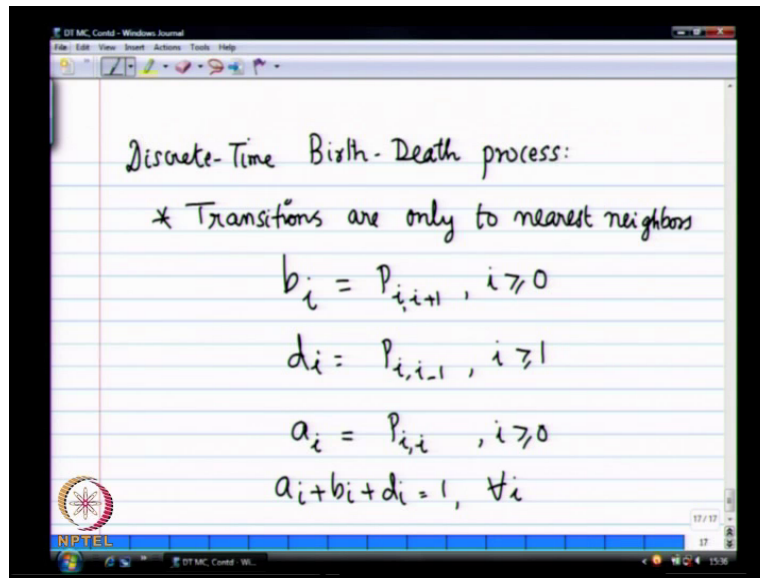 DT MC, Contd - Windows Journal
File Edit View Insert Actions Tools Help
Discrete-Time Birth-Death process:
* Transitions are only to nearest neighbors
b_i = P_{i,i+1}, i ≥ 0
d_i = P_{i,i-1}, i ≥ 1
a_i = P_{i,i}, i ≥ 0
a_i + b_i + d_i = 1, ∀i
17 / 17
17
NPTEL
DT MC, Contd - Wi...
15:36